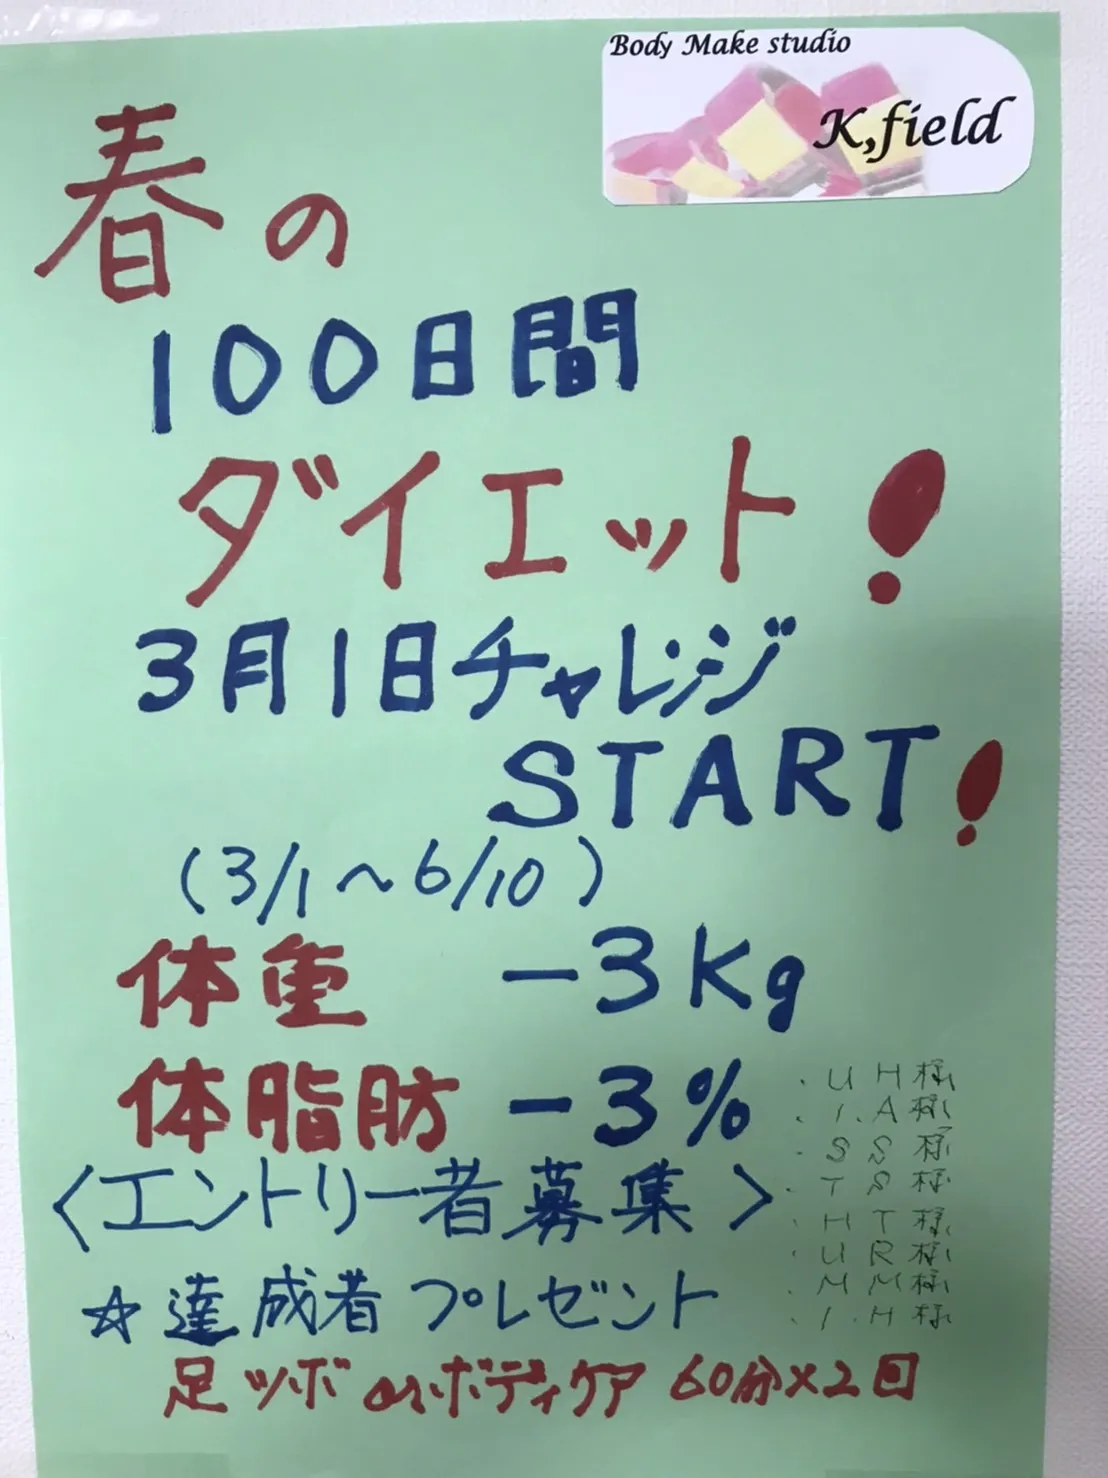 Body Make studio
K,field
春の
100日間
ダイエット!
3月1日チャレンジ
START!
(3/1〜6/10)
体重 -3Kg
体脂肪 -3%
・U H様
・I.A様
・S S 様
・T S 様
・H T 様
・U R 様
・M M様
・I.H様
〈エントリー者募集〉
☆達成者プレゼント
足ツボorボディケア 60分×2回